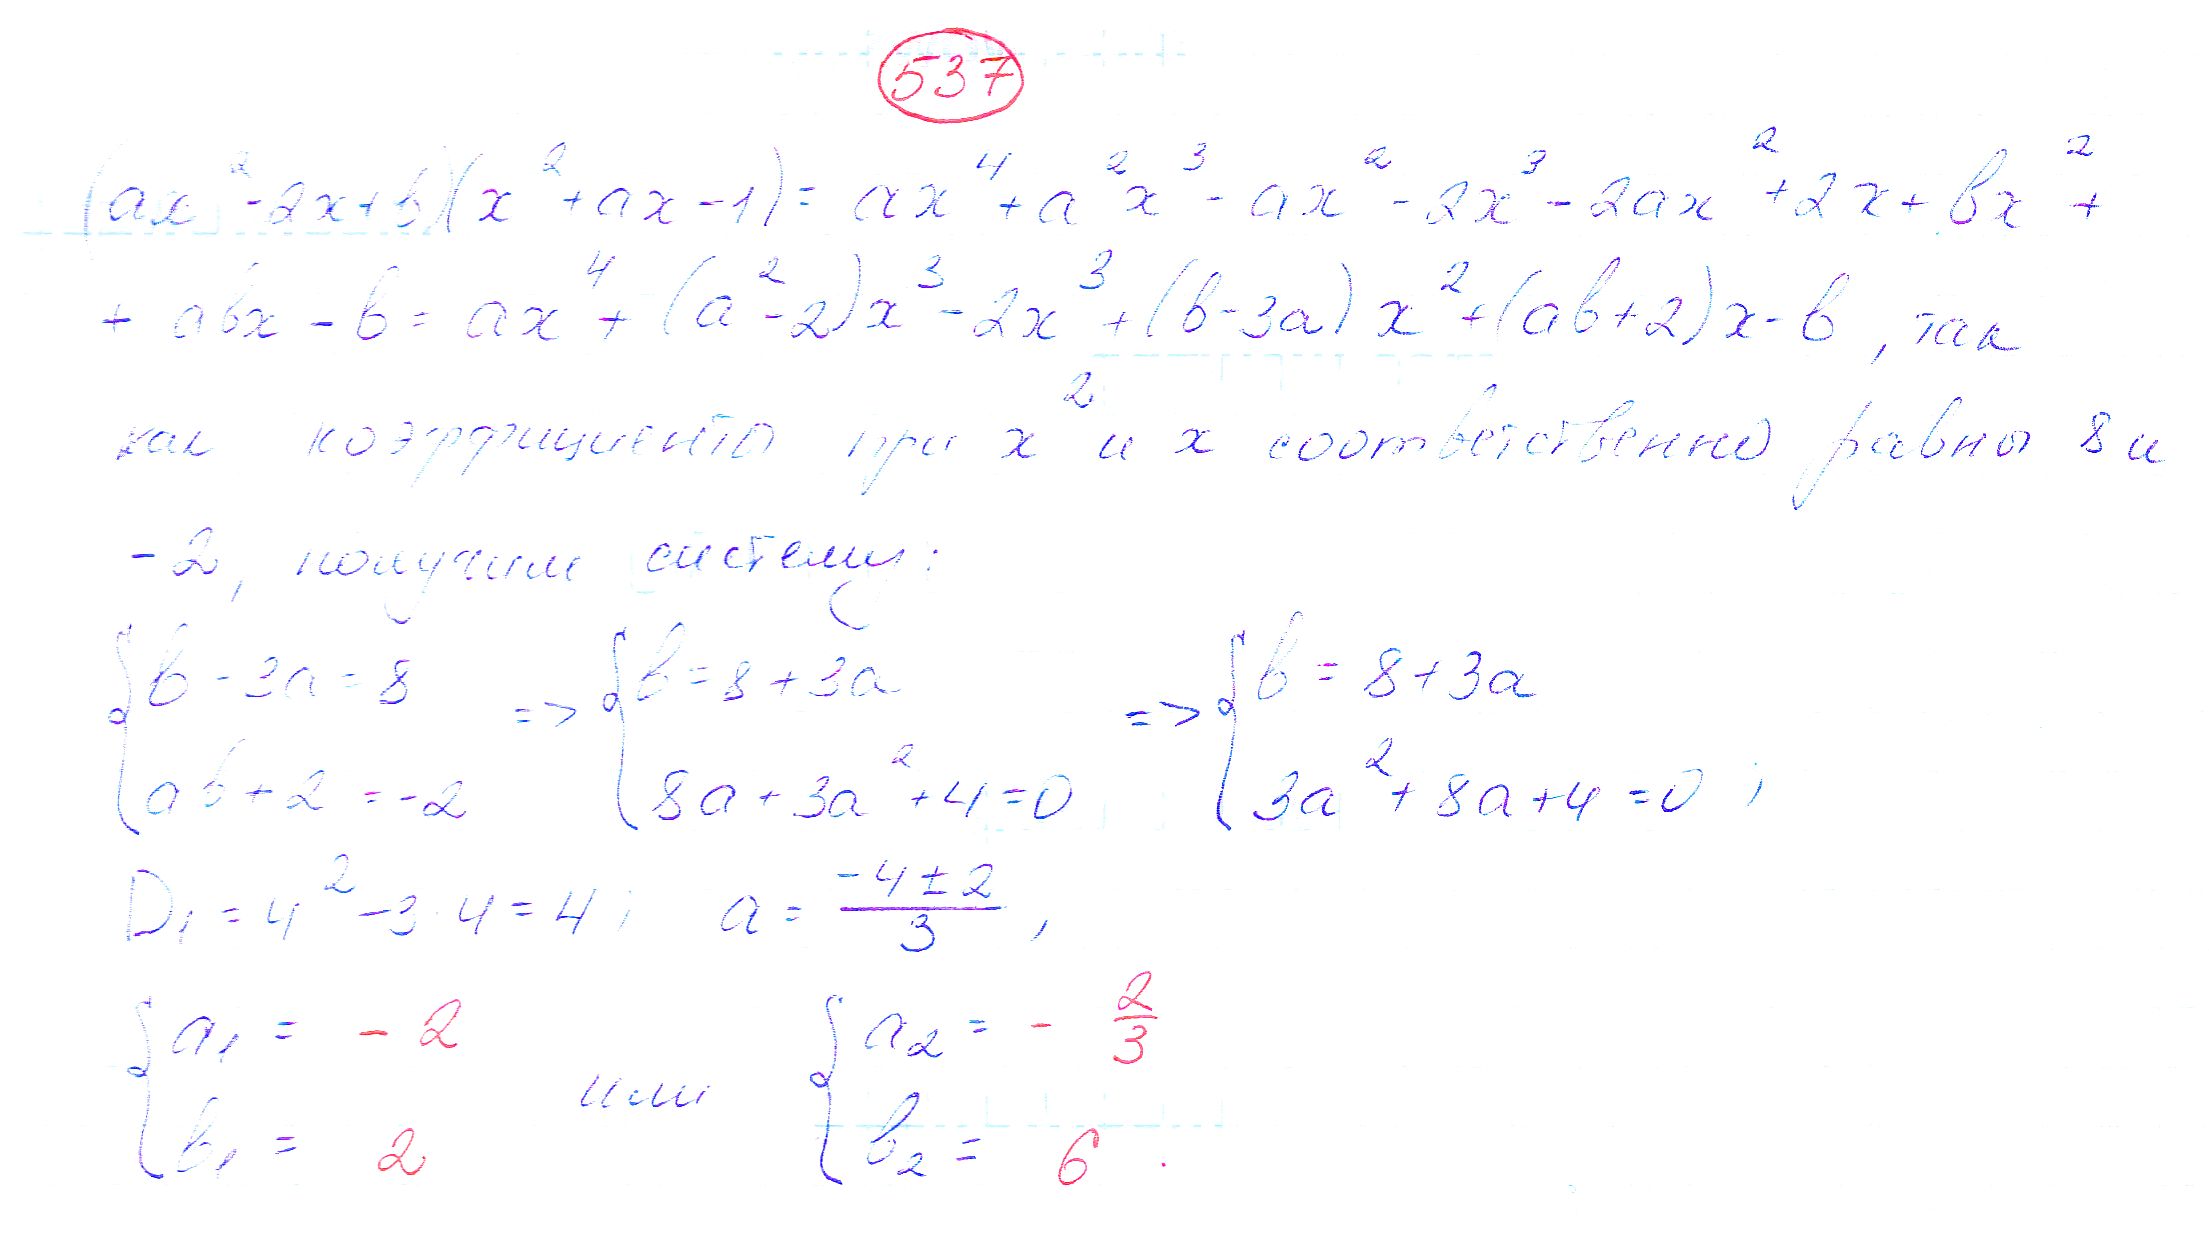 537
(ax²-2x+b)(x²+ax-1)= ax⁴+a²x³-ax²-2x³-2ax²+2x+bx²+
+abx-b=ax⁴+(a²-2)x³-2x³+(b-3a)x²+(ab+2)x-b, так
как коэффициенты при x² и x соответственно равны 8 и
-2, получим систему:
{b-3a=8 => {b=8+3a => {b=8+3a
{ab+2=-2 {8a+3a²+4=0 {3a²+8a+4=0;
D₁=4²-3·4=4; a=(-4±2)/3,
{a₁= -2 или {a₂= -2/3
{b₁= 2 {b₂= 6.